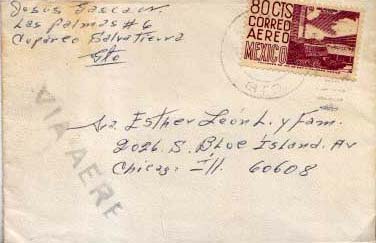 Jesus Gascaur.
Las Palmas # 6
Cupareo Salvatierra
Gto
80 CTS
CORREO
AEREO
MEXICO
VIA AERE
Sra. Esther León L. y Fam.
2026 S. Blue Island. Av
Chicago Ill. 60608